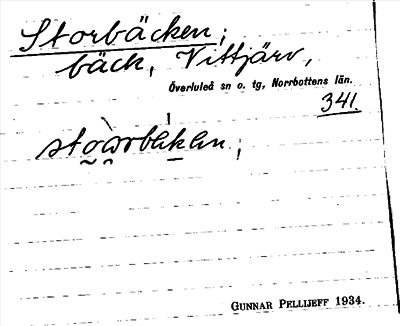 Storbäcken;
bäck, Vittjärv,
Överluleå sn o. tg, Norrbottens län.
341.
GUNNAR PELLIJEFF 1934.